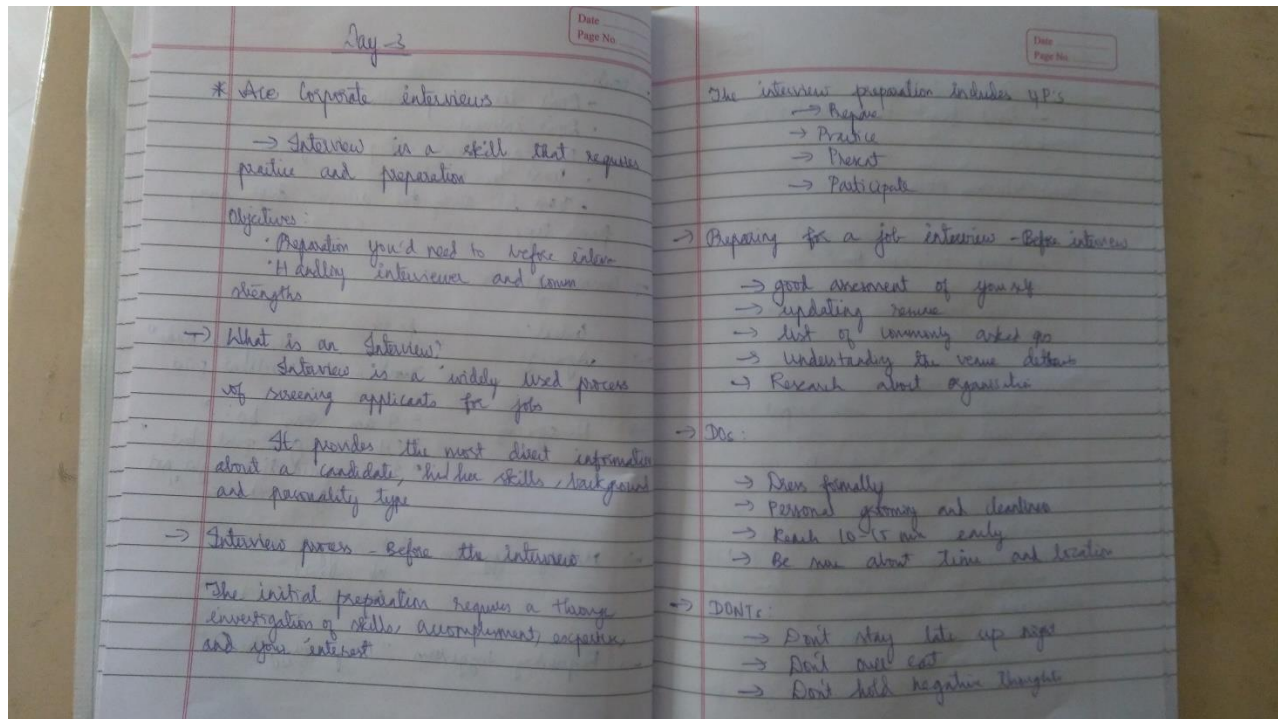 Date
Page No
Day - 3
* Ace Corporate interviews
→ Interview is a skill that requires
practice and preparation
Objectives:
· Preparation you'd need to before interv
· Handling interviewer and comm
strengths
→ What is an Interview?
Interview is a widely used process
of screening applicants for jobs
It provides the most direct information
about a candidate, his her skills, background
and personality type
→ Interview process - Before the interview
The initial preparation requires a
investigation of skills, expertise,
and your interest
Date
Page No
The interview preparation includes 4P's
→ Prepare
→ Practice
→ Present
→ Participate
→ Preparing for a job interview - Before interview
→ good assessment of yourself
→ updating resume
→ list of commonly asked qns
→ Understanding the venue
→ Research about
→ DOs:
→ Dress formally
→ Personal grooming and cleanliness
→ Reach 10-15 min early
→ Be sure about time and location
→ DONTs:
→ Don't stay late up night
→ Don't over eat
→ Don't hold negative thoughts